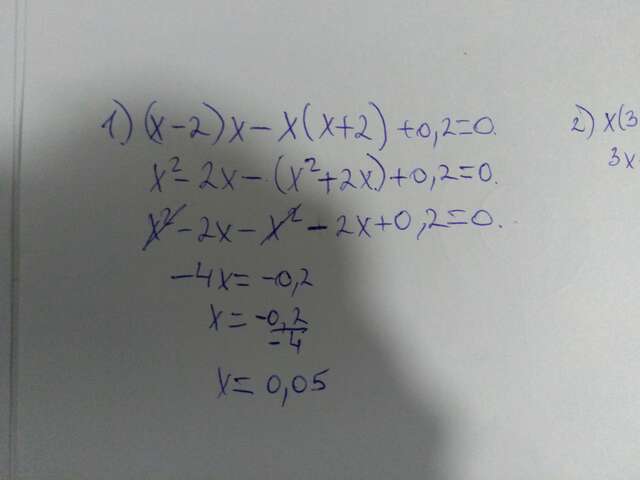 1) (x-2)x - x(x+2) +0,2=0.
x²- 2x - (x²+2x)+0,2=0.
x² -2x - x² - 2x+0,2=0.
-4x= -0,2
x= -0,2/-4
x= 0,05
2) x(3
3x